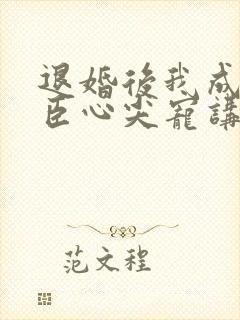 退婚後我成
臣心尖寵講
范文程